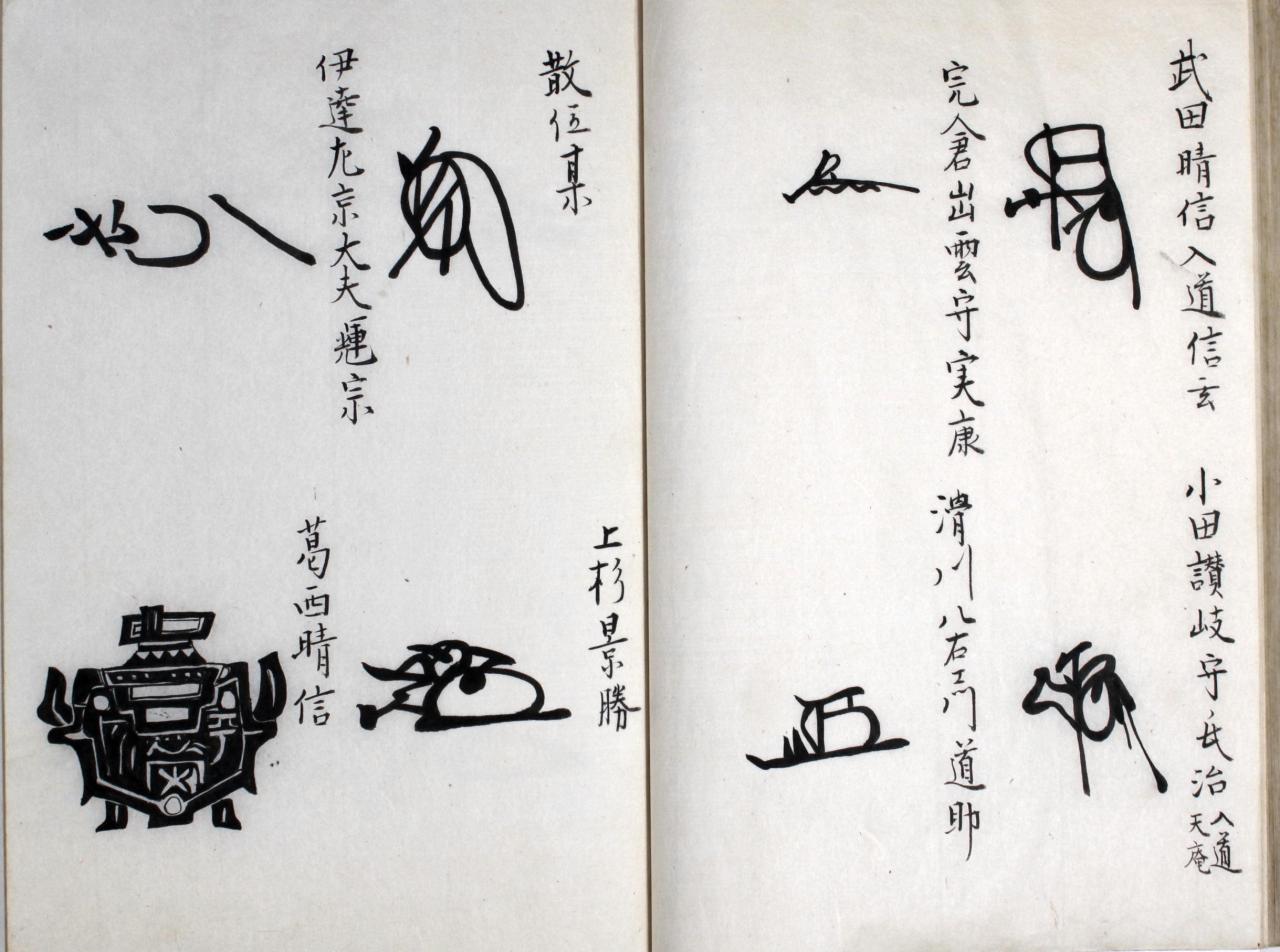 武田晴信入道信玄
小田讃岐守氏治入道天庵
完倉出雲守実康
滑川八右衛門道助
散位某
上杉景勝
伊達左京大夫輝宗
葛西晴信